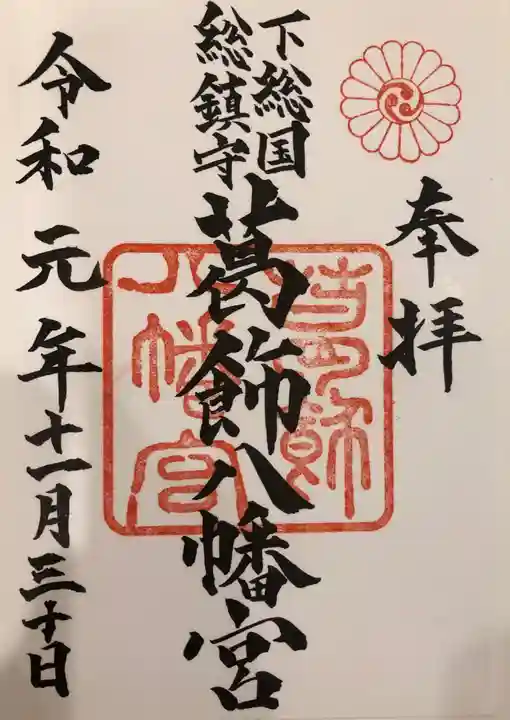 奉拝
下総国
総鎮守
葛飾八幡宮
八幡宮
令和元年十一月三十日